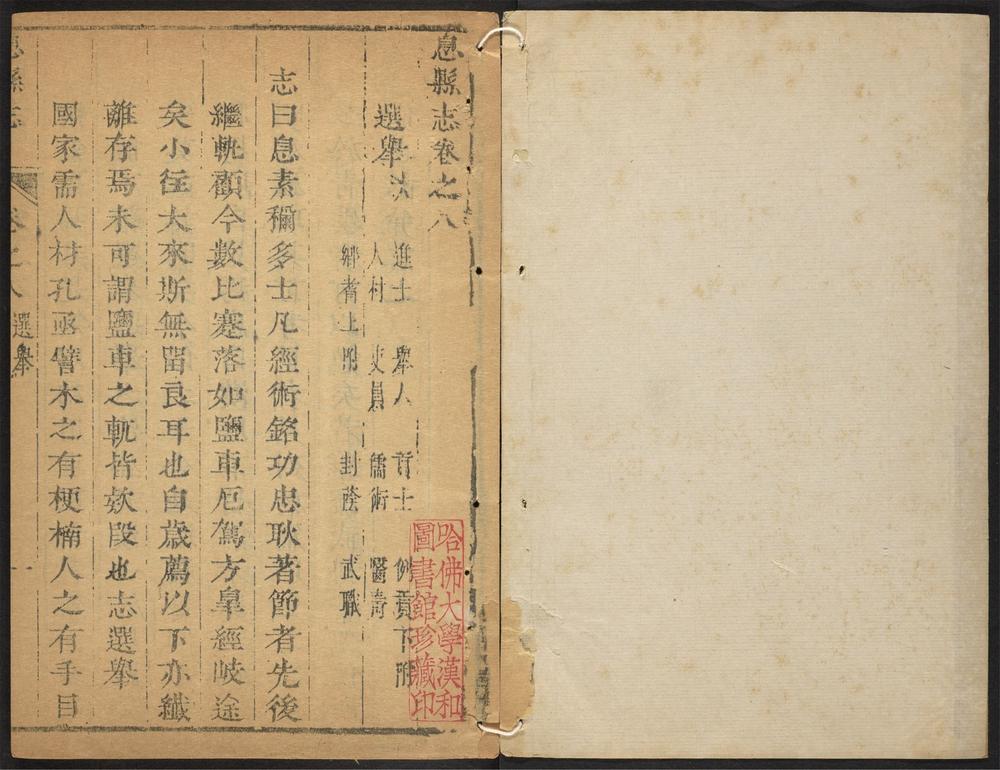 息縣志卷之八
選舉
進士 舉人 貢士 例貢下附
人材 吏員 儒術 醫
鄉耆上附 封蔭 武職
志曰息素稱多士凡經術銘功忠耿著節者先後
繼軌顧今數比蹇落如鹽車厄駕方臯經岐途
矣小徃大來斯無留良耳也自歲薦以下亦纖
離存焉未可謂鹽車之軌皆欵段也志選舉
國家需人材孔亟譬木之有梗楠人之有手目
息縣志 卷之八 選舉 一
哈佛大學漢和
圖書館珍藏印